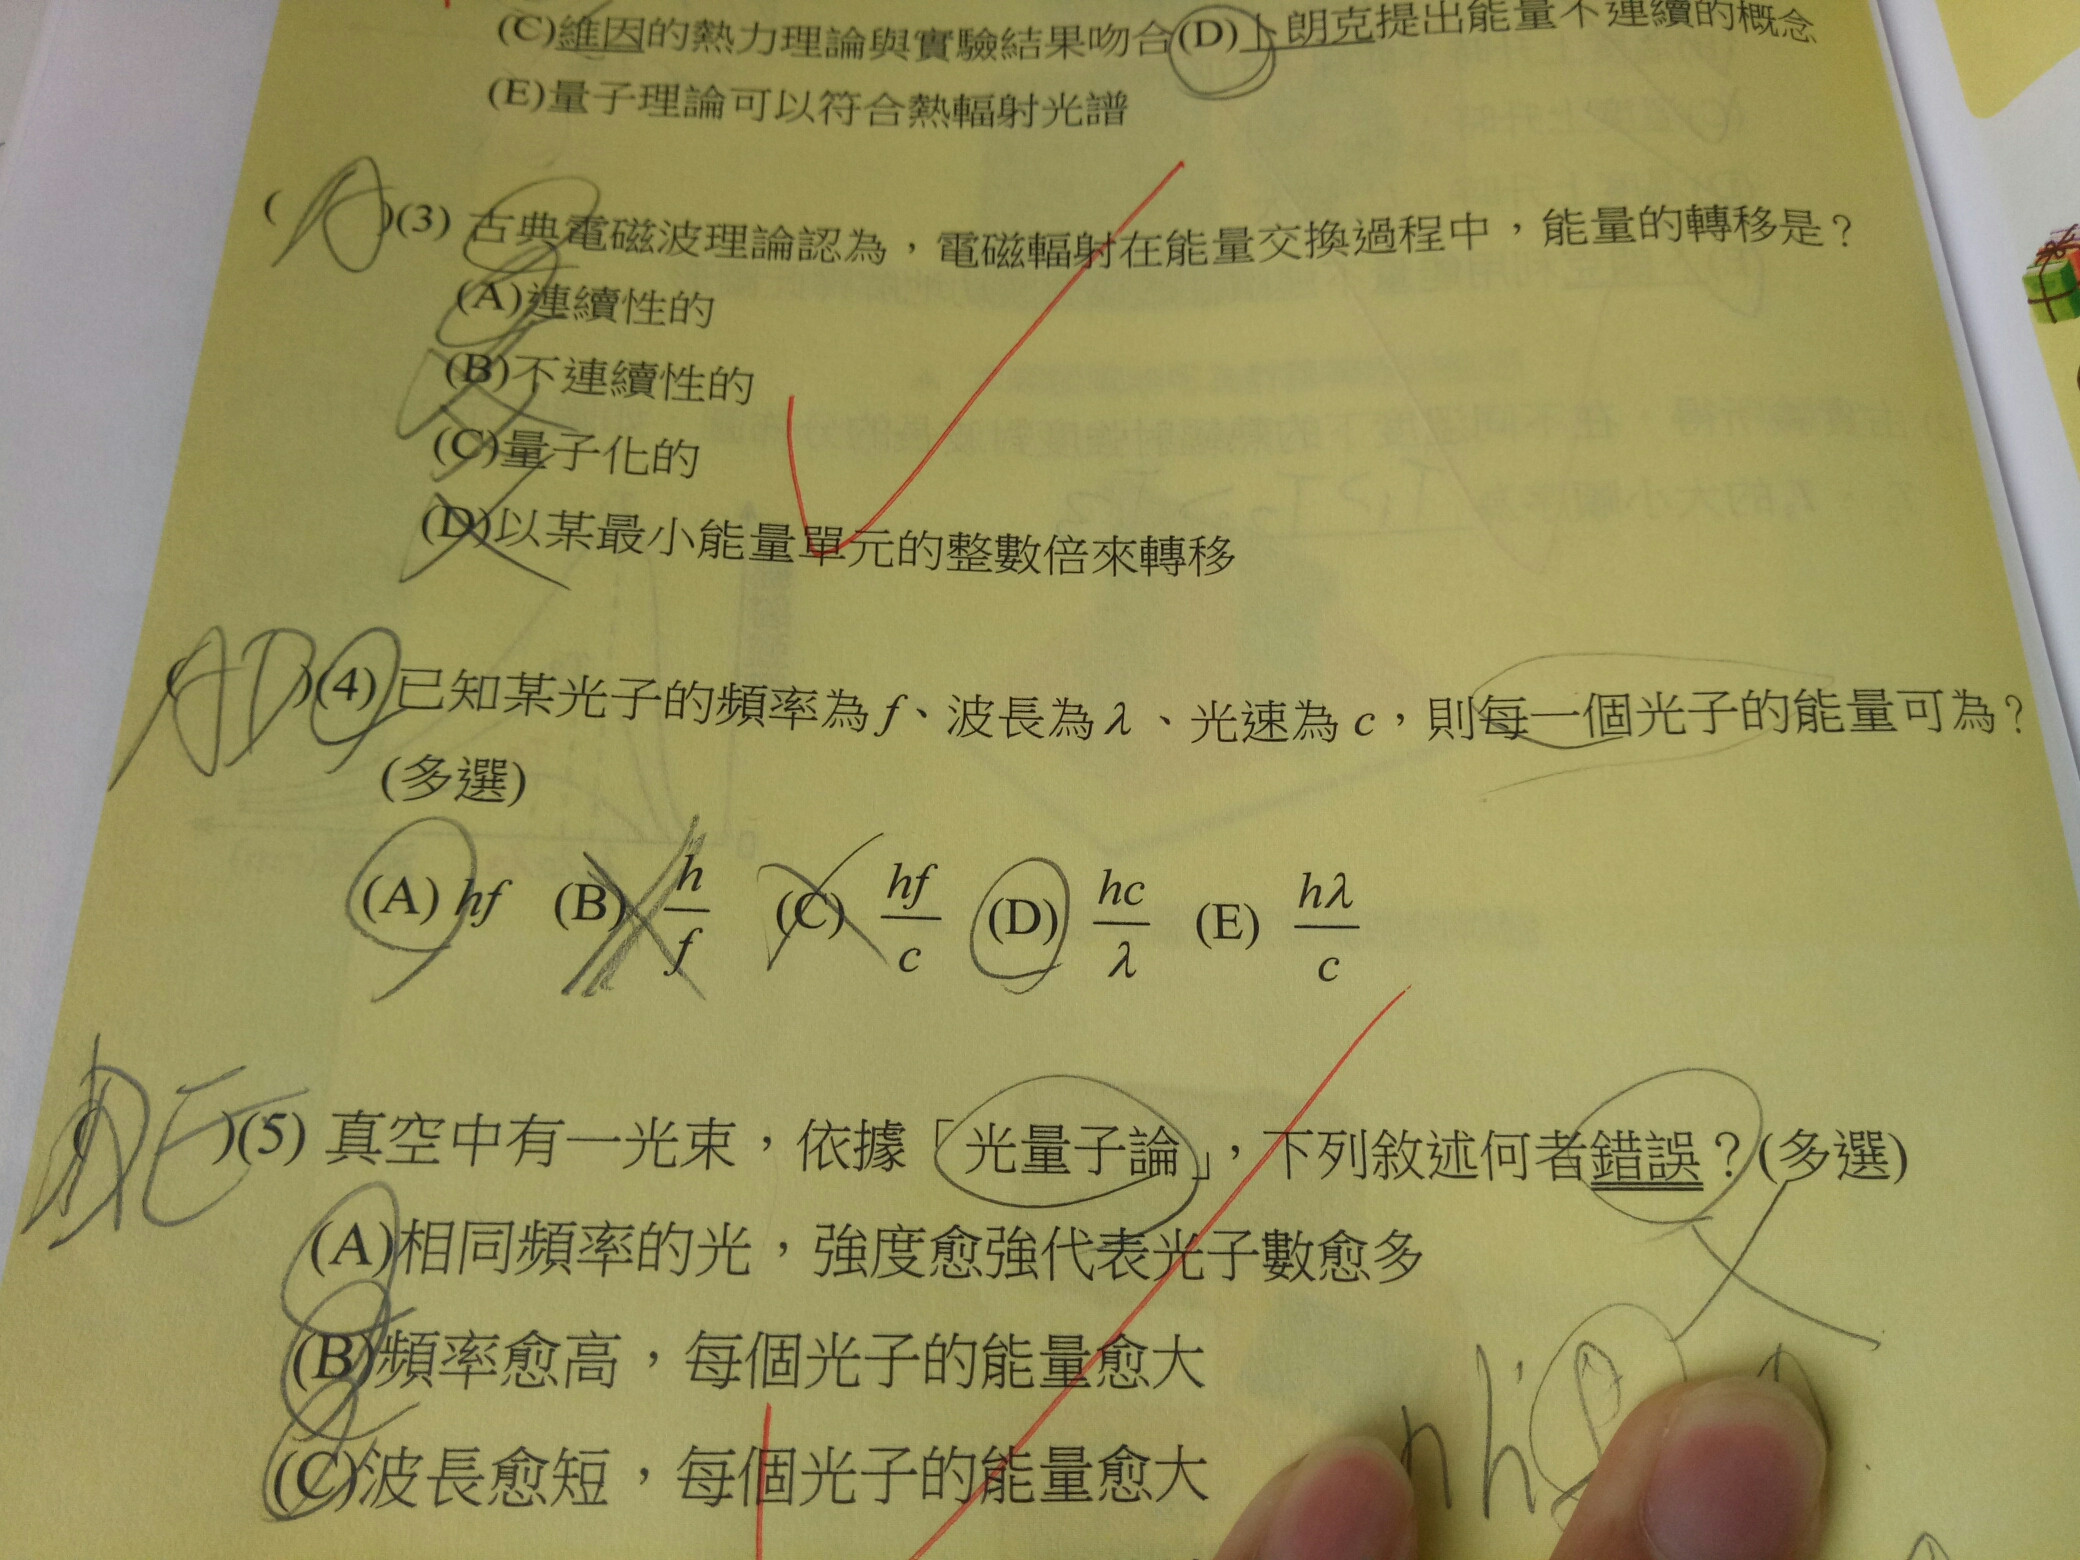 (C)維因的熱力理論與實驗結果吻合(D)卜朗克提出能量不連續的概念
(E)量子理論可以符合熱輻射光譜
(A)(3) 古典電磁波理論認為，電磁輻射在能量交換過程中，能量的轉移是？
(A)連續性的
(B)不連續性的
(C)量子化的
(D)以某最小能量單元的整數倍來轉移
(AD)(4) 已知某光子的頻率為 f、波長為 λ、光速為 c，則每一個光子的能量可為？
(多選)
(A) hf (B) h/f (C) hf/c (D) hc/λ (E) hλ/c
(DE)(5) 真空中有一光束，依據「光量子論」，下列敘述何者錯誤？(多選)
(A)相同頻率的光，強度愈強代表光子數愈多
(B)頻率愈高，每個光子的能量愈大
(C)波長愈短，每個光子的能量愈大